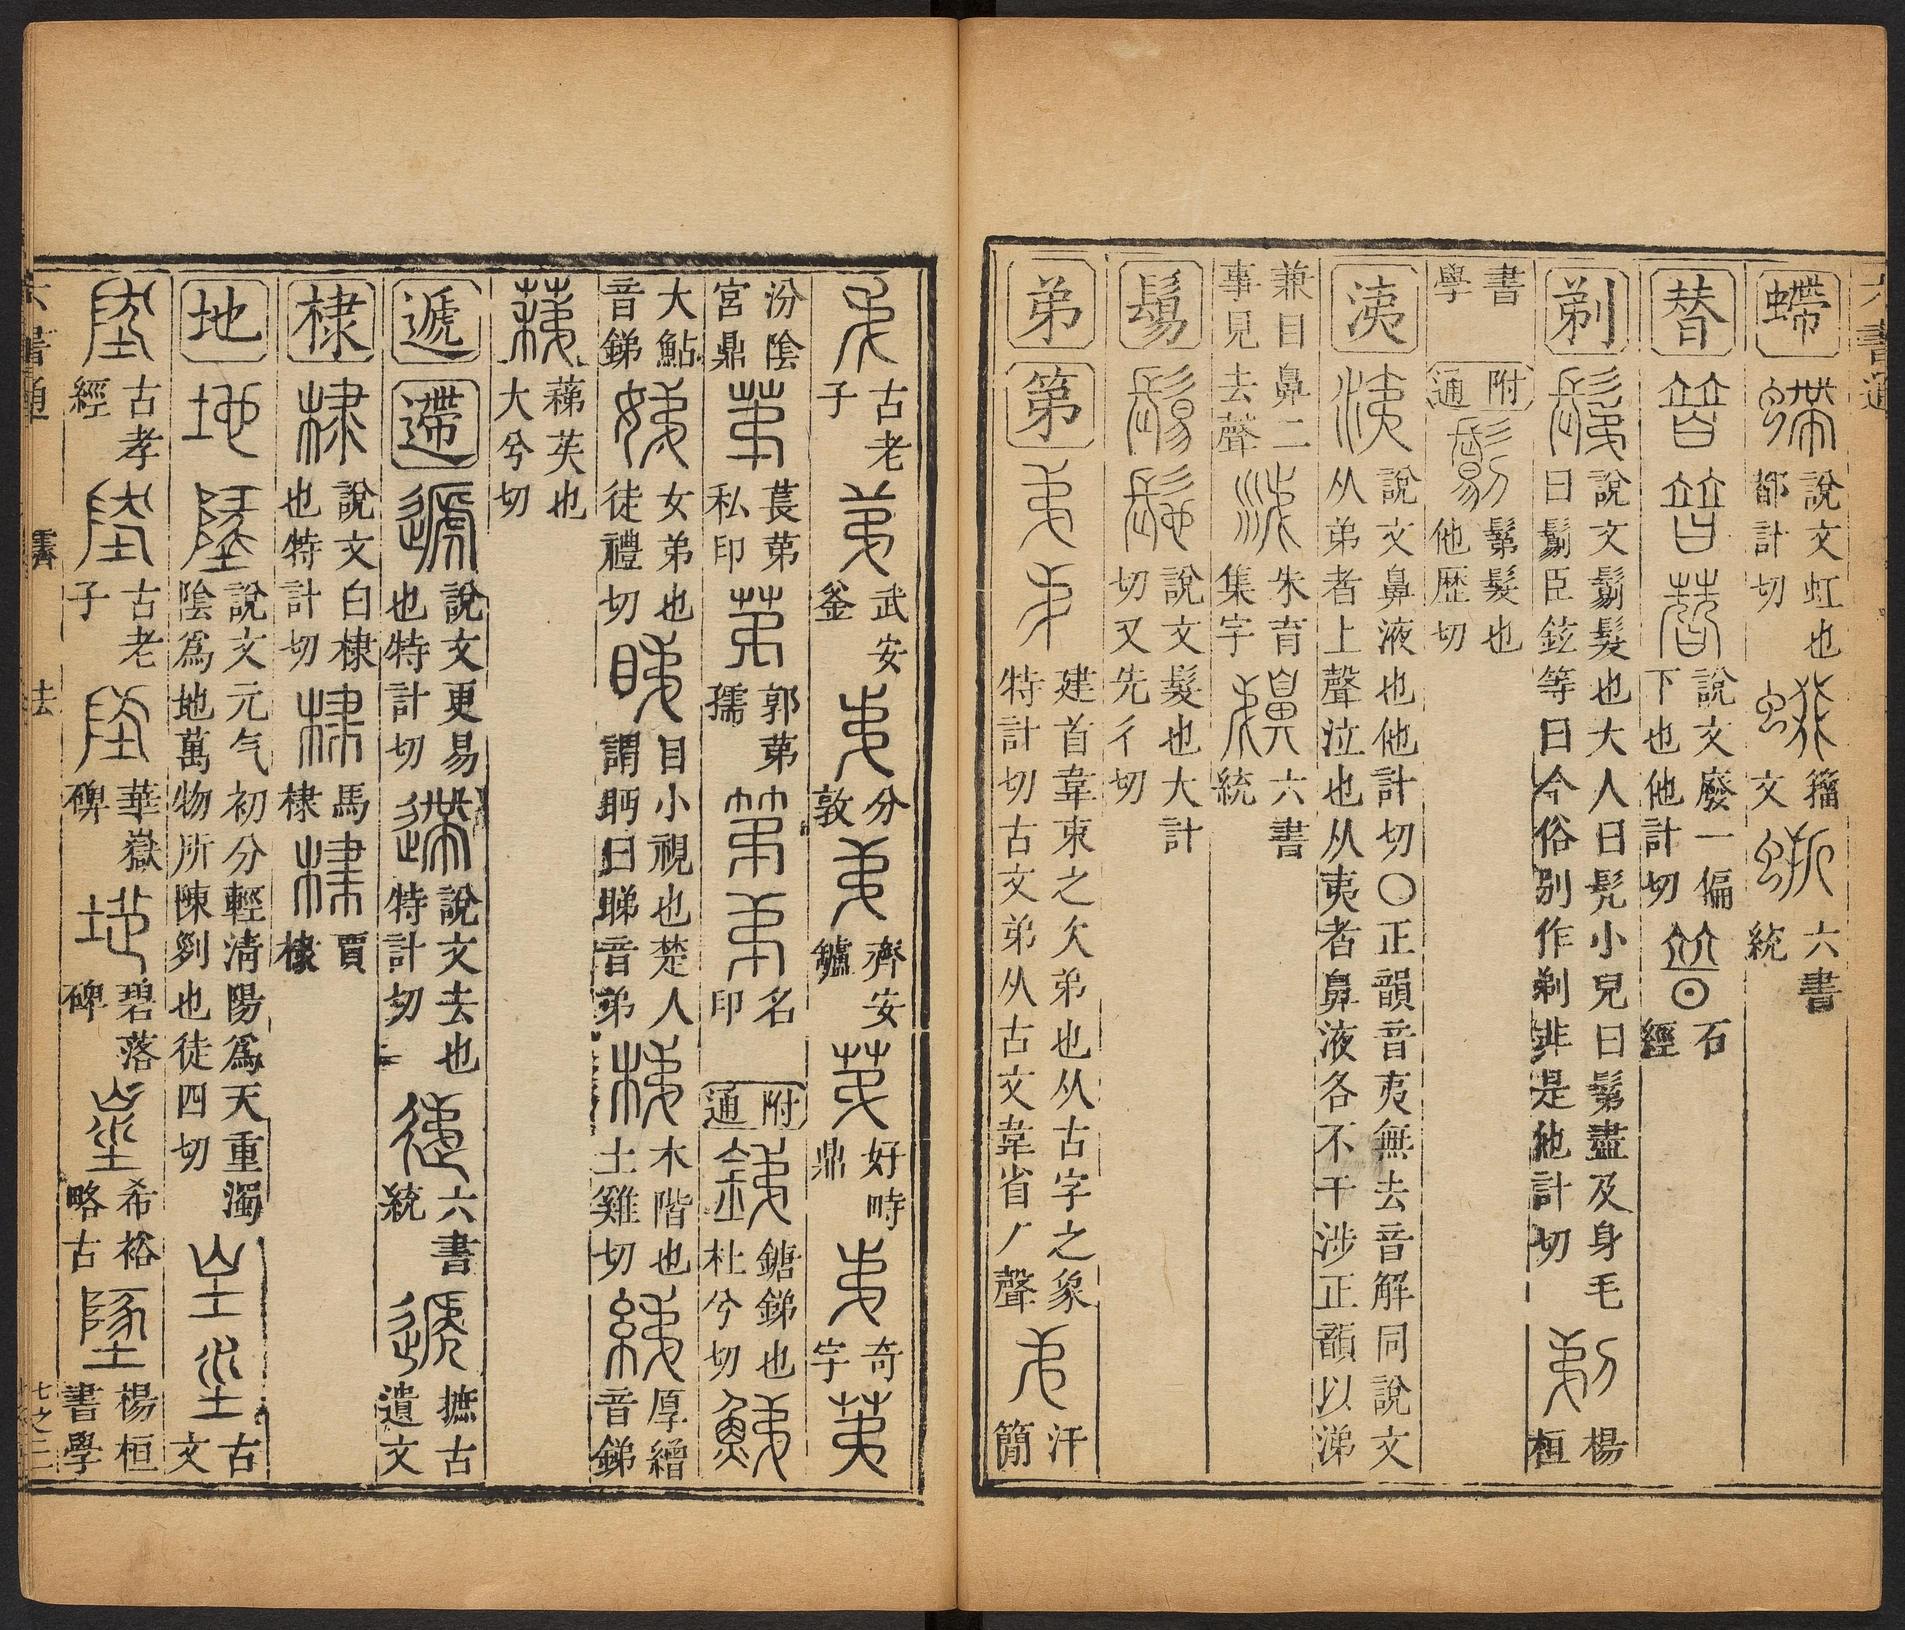 六書通
螮 說文虹也都計切 籀文 六書統
替 說文廢一偏下也他計切 石經
剃 說文鬀髮也大人曰髡小兒曰鬀盡及身毛曰鬄臣鉉等曰今俗別作剃非是他計切 楊桓
書學 附通 鬀髮也他歷切
洟 說文鼻液也他計切〇正韻音夷無去音解同說文从弟者上聲泣也从夷者鼻液各不干涉正韻以涕
兼目鼻二事見去聲 朱育集字 六書統
髢 說文髲也大計切又先彳切
弟 第 建首韋束之次弟也从古字之象特計切古文弟从古文韋省丿聲 汗簡
古老子 武安釜 分敦 齊安鑪 好畤鼎 奇字
汾陰宮鼎 萇苐私印 郭苐孺 名印 附通 鎕銻也杜兮切
大鮎音銻 女弟也徒禮切 目小視也楚人謂眄曰睇音弟 木階也土雞切 厚繒音銻
蕛苵也大兮切
遞 遰 說文更易也特計切 說文去也特計切 六書統 摭古遺文
棣 說文白棣也特計切 馬棣 賈棣
地 說文元气初分輕清陽爲天重濁陰爲地萬物所陳列也徒四切 古文
古孝經 古老子 華嶽碑 碧落碑 希裕略古 楊桓書學
六書通 霽 去 七之二